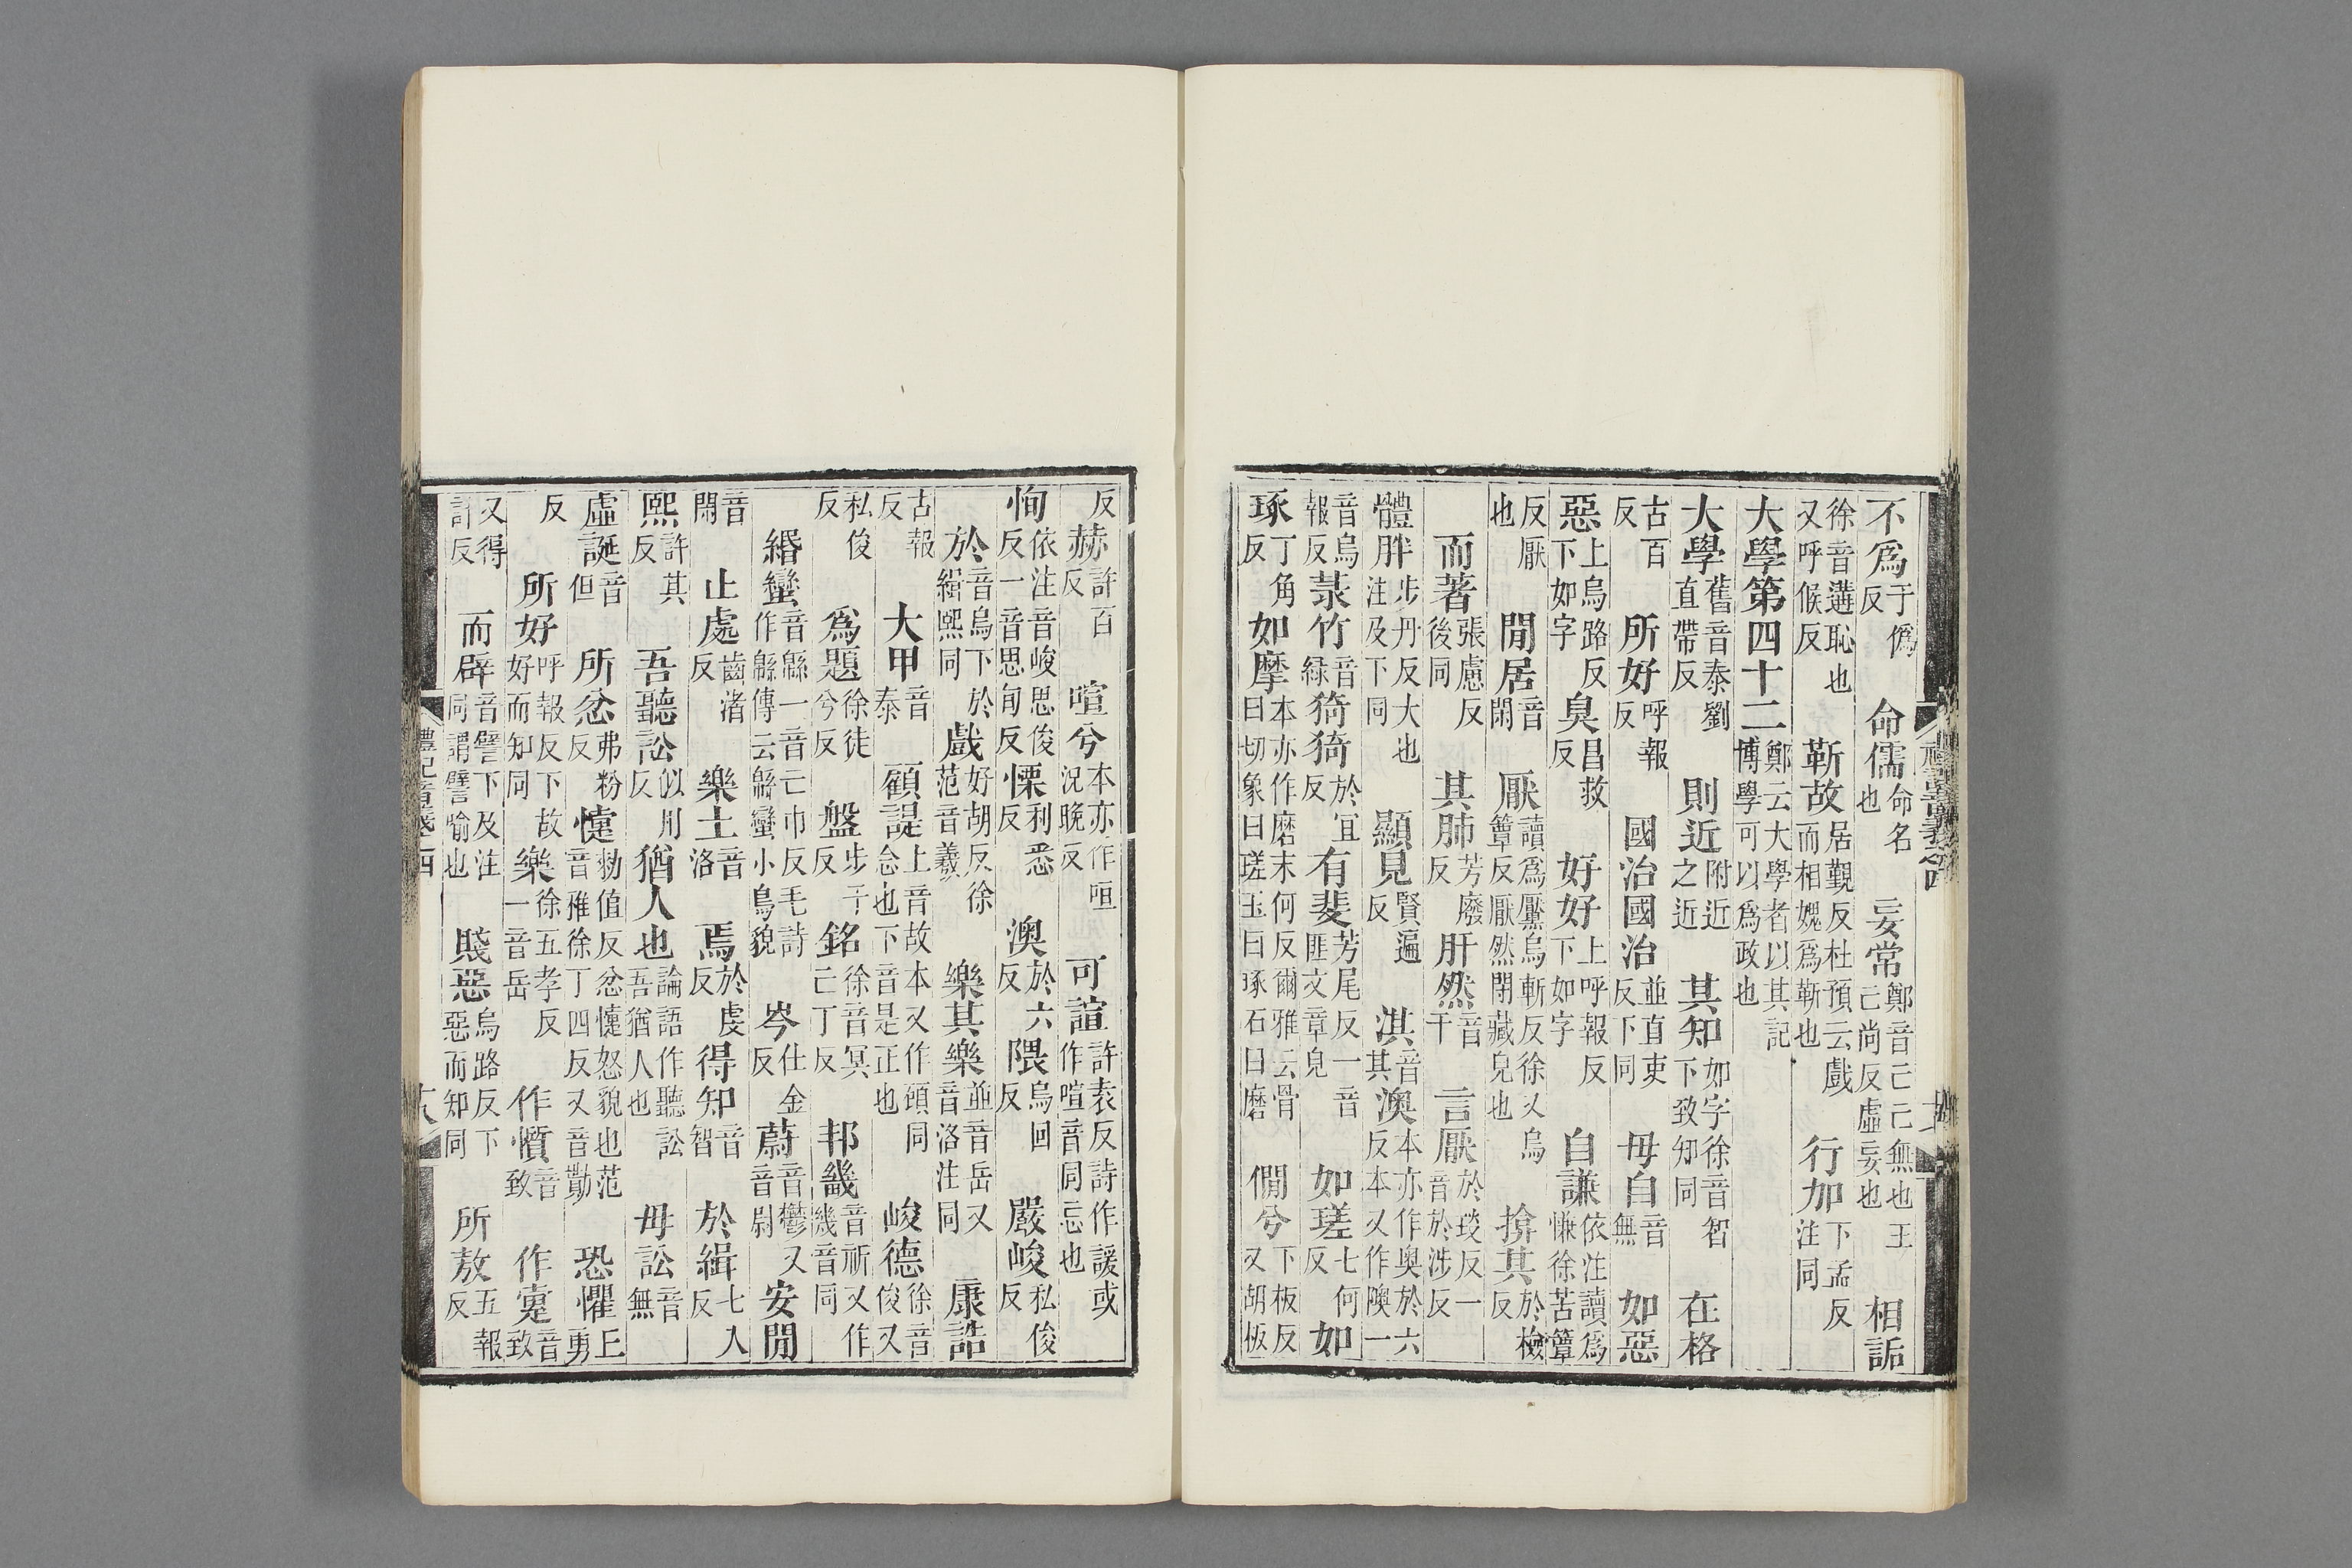 不爲于僞反 命儒命名也 妄常鄭音亡亡無也王己尚反虛妄也 相詬
徐音遘恥也又呼候反 靳故居覲反杜預云戲而相媿爲靳也 行加下孟反注同
大學第四十二鄭云大學者以其記博學可以爲政也
大學舊音泰劉直帶反 則近附近之近 其知如字徐音智下致知同 在格
古百反 所好呼報反 國治國治並直吏反下同 毋自音無 如惡
惡上烏路反下如字 臭昌救反 好好上呼報反下如字 自謙依注讀爲慊徐苦簟
反厭也 閒居音閑 厭讀爲黶烏斬反徐又烏簟反厭然閉藏皃也 揜其於檢反
而著張慮反後同 其肺芳廢反 肝然音干 言厭於琰反一音於涉反
體胖步丹反大也注及下同 顯見賢遍反 淇音其 澳本亦作奥於六反本又作隩一
音烏報反 菉竹音緑 猗猗於宜反 有斐芳尾反一音匪文章皃 如瑳七何反 如
琢丁角反 如摩本亦作磨末何反爾雅云骨曰切象曰瑳玉曰琢石曰磨 僩兮下板反又胡板
反 赫許百反 喧兮本亦作咺況晚反 可諠許袁反詩作諼或作喧音同忘也
恂依注音峻思俊反一音思旬反 慄利悉反 澳於六反 隈烏回反 嚴峻私俊反
於音烏下於緝熙同 戲好胡反徐范音羲 樂其樂並音岳又音洛注同 康誥
古報反 大甲音泰 顧諟上音故本又作頭同念也下音是正也 峻德徐音俊又
私俊反 爲題徐徒兮反 盤步干反 銘徐音冥亡丁反 邦畿音祈又作幾音同
緡蠻音緜一音亡巾反毛詩作緜傳云緜蠻小鳥貌 岑仕金反 蔚音鬱又音尉 安閒
音閑 止處齒渚反 樂土音洛 焉於虔反 得知音智 於緝七入反
熙許其反 吾聽訟似用反 猶人也論語作聽訟吾猶人也 毋訟音無
虛誕音但 所忿弗粉反 懥勑值反忿懥怒貌也范音稚徐丁四反又音勣 恐懼上勇
反 所好呼報反下故好而知同 樂徐五孝反一音岳 作懫音致 作疐音致
又得計反 而辟音譬下及注同謂譬喻也 賤惡烏路反下惡而知同 所敖五報反